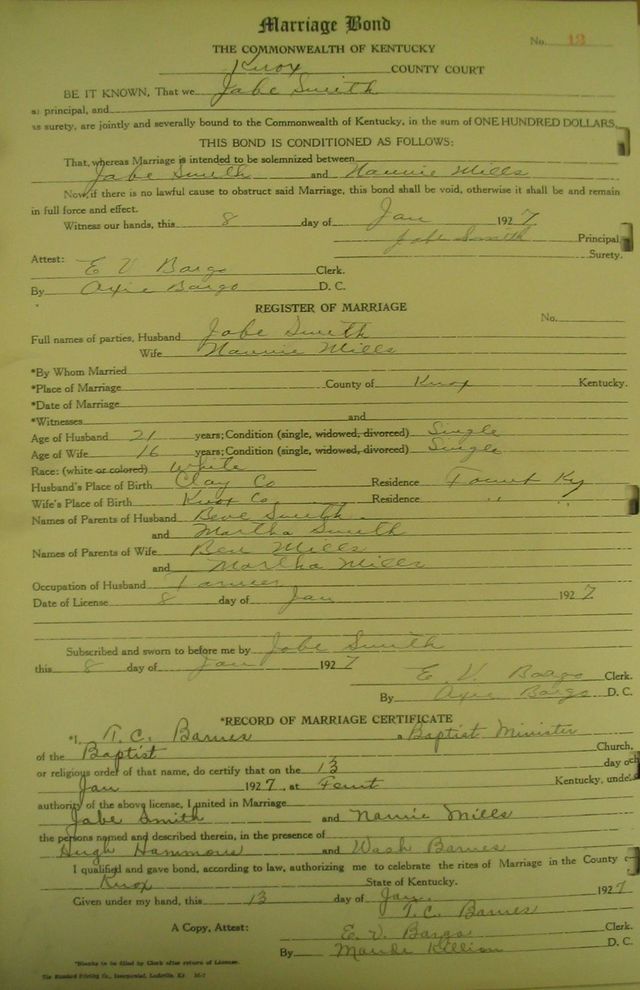 Marriage Bond
No. 13
THE COMMONWEALTH OF KENTUCKY
Knox COUNTY COURT
BE IT KNOWN, That we Jabe Smith
as principal, and
as surety, are jointly and severally bound to the Commonwealth of Kentucky, in the sum of ONE HUNDRED DOLLARS.
THIS BOND IS CONDITIONED AS FOLLOWS:
That, whereas Marriage is intended to be solemnized between
Jabe Smith and Nannie Mills
Now, if there is no lawful cause to obstruct said Marriage, this bond shall be void, otherwise it shall be and remain
in full force and effect.
Witness our hands, this 8 day of Jan 1927
Jabe Smith Principal
Surety.
Attest: E V Bargo Clerk.
By Oxie Bargo D. C.
REGISTER OF MARRIAGE
No.
Full names of parties, Husband Jabe Smith
Wife Nannie Mills
*By Whom Married
*Place of Marriage County of Knox Kentucky.
*Date of Marriage
*Witnesses and
Age of Husband 21 years; Condition (single, widowed, divorced) Single
Age of Wife 16 years; Condition (single, widowed, divorced) Single
Race: (white or colored) White
Husband's Place of Birth Clay Co Residence Fount Ky
Wife's Place of Birth Knox Co Residence " "
Names of Parents of Husband Beve Smith
and Martha Smith
Names of Parents of Wife Ben Mills
and Martha Mills
Occupation of Husband Farmer
Date of License 8 day of Jan 1927
Subscribed and sworn to before me by Jabe Smith
this 8 day of Jan 1927
E. V. Bargo Clerk.
By Oxie Bargo D. C.
*RECORD OF MARRIAGE CERTIFICATE
*I, T. C. Barnes a Baptist Minister
of the Baptist Church,
or religious order of that name, do certify that on the 13 day of
Jan 1927, at Kentucky, under
authority of the above license, I united in Marriage
Jabe Smith and Nannie Mills
the persons named and described therein, in the presence of
Hugh Hammons and Wash Barnes
I qualified and gave bond, according to law, authorizing me to celebrate the rites of Marriage in the County
Knox State of Kentucky.
Given under my hand, this 13 day of Jan. 1927
T. C. Barnes
A Copy, Attest: E. V. Bargo Clerk.
By Maude Killion D. C.
*Blanks to be filled by Clerk after return of License.
The Standard Printing Co., Incorporated, Louisville, Ky.